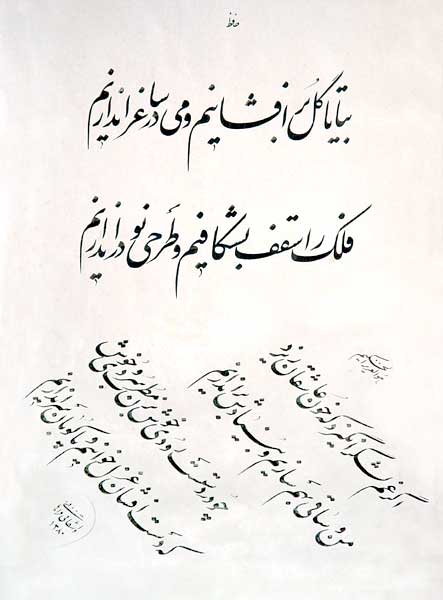 حافظ
بیا تا گل بر افشانیم و می در ساغر اندازیم
فلک را سقف بشکافیم و طرحی نو در اندازیم
اگر غم لشکر انگیزد که خون عاشقان ریزد
من و ساقی بهم سازیم و بنیادش بر اندازیم
چو در دست است رودی خوش بزن مطرب سرودی خوش
که دست افشان غزل خوانیم و پاکوبان سر اندازیم
۱۳۸۰